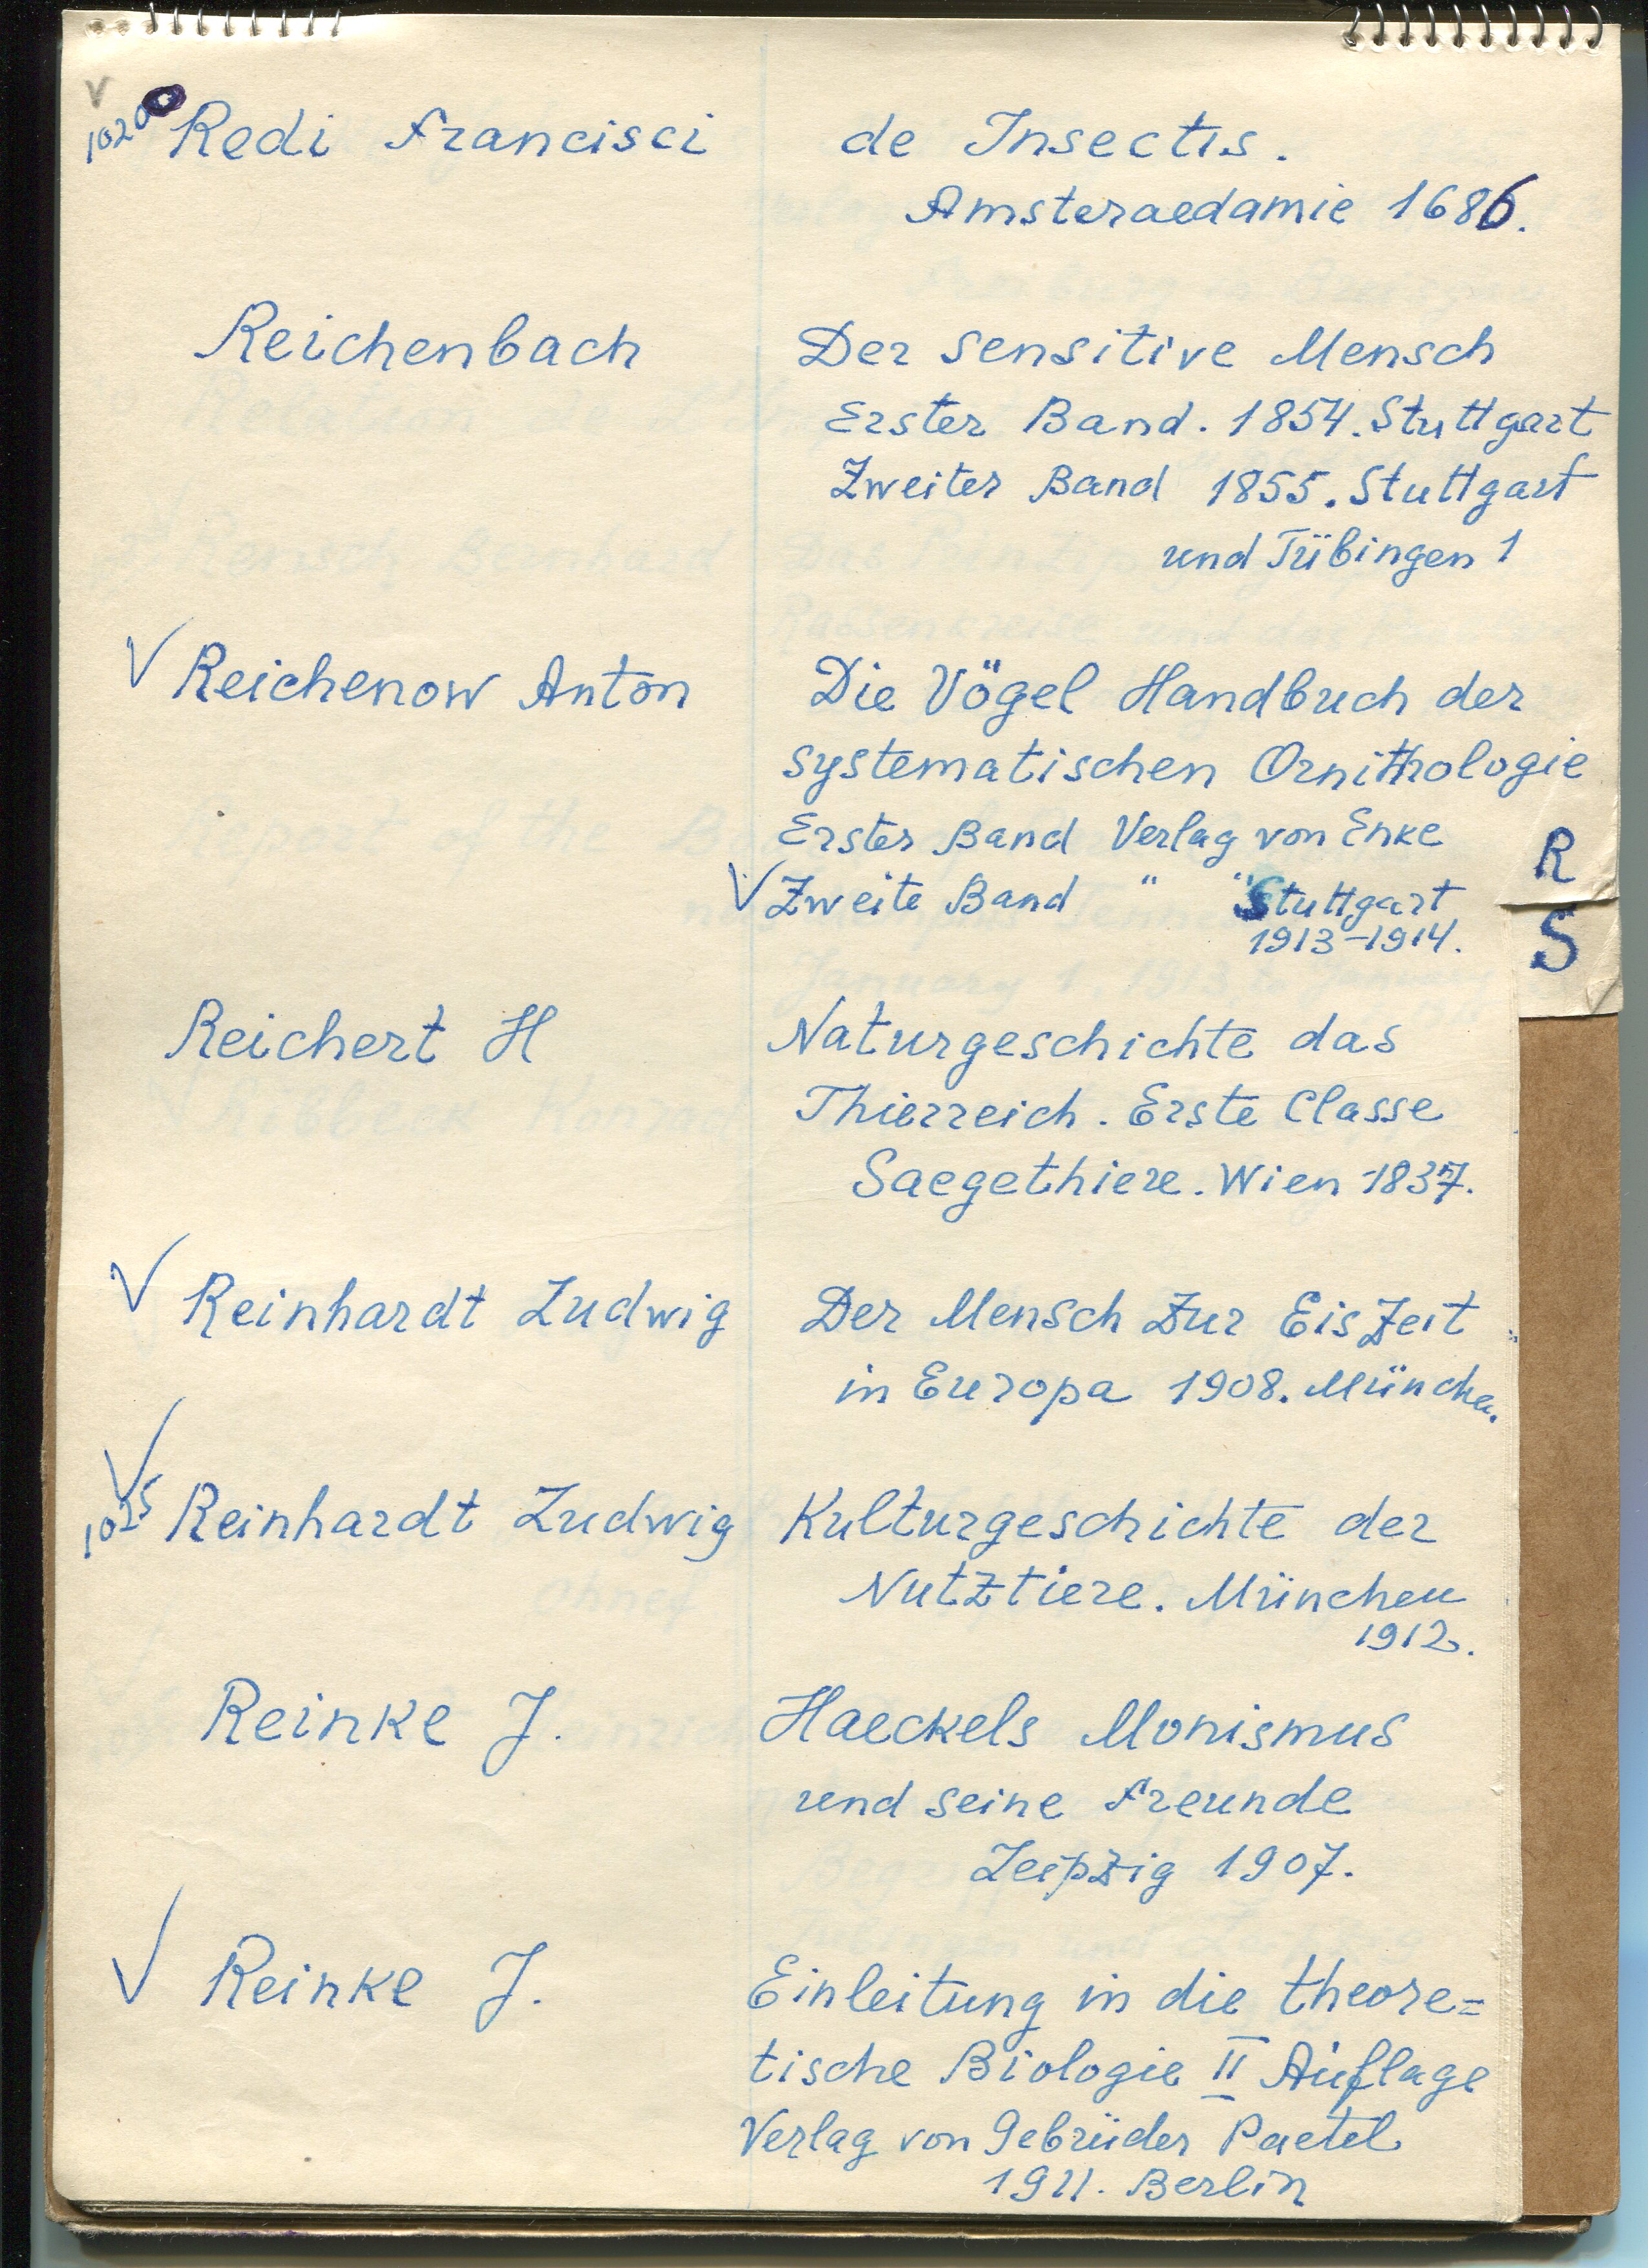 V
1020 Redi Francisci de Insectis.
Amsteraedamie 1686.
Reichenbach Der sensitive Mensch
Erster Band. 1854. Stuttgart
Zweiter Band 1855. Stuttgart
und Tübingen 1
V Reichenow Anton Die Vögel Handbuch der
systematischen Ornithologie
Erster Band Verlag von Enke
V Zweite Band " " Stuttgart
1913-1914.
R
S
Reichert H Naturgeschichte das
Thierreich. Erste Classe
Saegethiere. Wien 1837.
V Reinhardt Ludwig Der Mensch zur Eiszeit
in Europa 1908. München.
V
1025 Reinhardt Ludwig Kulturgeschichte der
Nutztiere. München
1912.
Reinke J. Haeckels Monismus
und seine Freunde
Leipzig 1907.
V Reinke J. Einleitung in die theore=
tische Biologie II Auflage
Verlag von Gebrüder Paetel
1911. Berlin